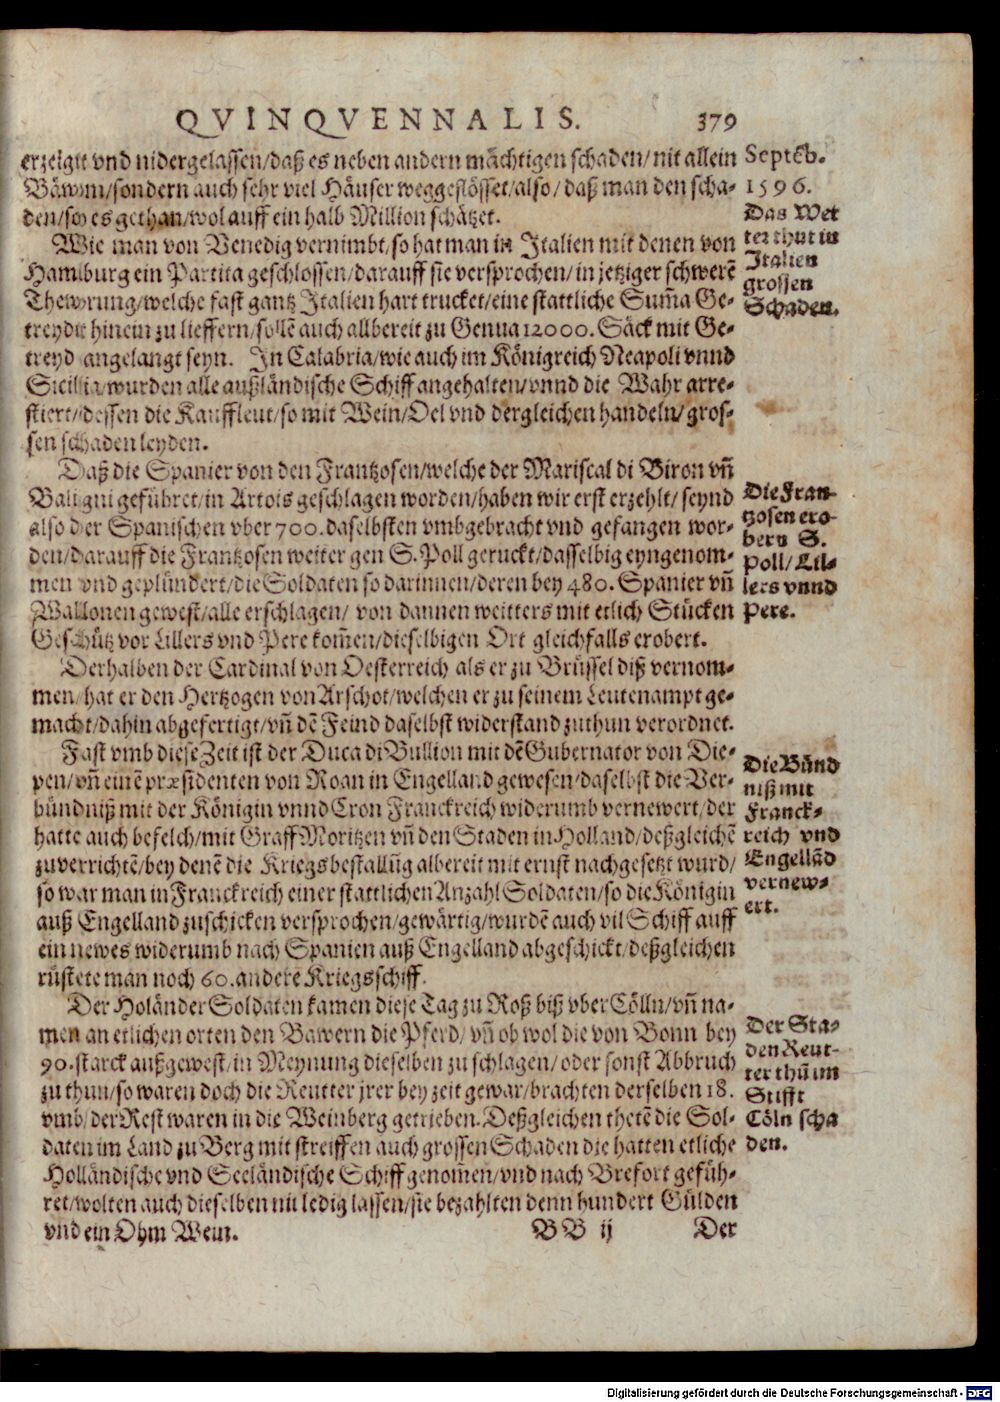 QVINQVENNALIS. 379
erzeigt vnd nidergelassen/daß es neben andern mächtigen schaden/nit allein
Bäwm/sondern auch sehr viel Häuser weggeflösset/also/daß man den scha-
den/so es gethan/wol auff ein halb Million schätzet.
Septẽb.
1596.
Das Wet
ter thut in
Italien
grossen
Schaden.
Wie man von Venedig vernimbt/so hat man in Italien mit denen von
Hamburg ein Partita geschlossen/darauff sie versprochen/in jetziger schwerẽ
Thewrung/welche fast gantz Italien hart trucket/eine stattliche Sum̃a Ge-
treyde hinein zu lieffern/sollẽ auch allbereit zu Genua 12000. Säck mit Ge-
treyd angelangt seyn. In Calabria/wie auch im Königreich Neapoli vnnd
Sicilia/wurden alle außländische Schiff angehalten/vnnd die Wahr arre-
stiert/dessen die Kauffleut/so mit Wein/Oel vnd dergleichen handeln/gros-
sen schaden leyden.
Daß die Spanier von den Frantzosen/welche der Mariscal di Biron vñ
Baligni geführet/in Artois geschlagen worden/haben wir erst erzehlt/seynd
also der Spanischen vber 700. daselbsten vmbgebracht vnd gefangen wor-
den/darauff die Frantzosen weiter gen S. Poll geruckt/dasselbig eyngenom-
men vnd geplündert/die Soldaten so darinnen/deren bey 480. Spanier vñ
Wallonen gewest/alle erschlagen/ von dannen weitters mit etlich Stücken
Geschütz vor Lillers vnd Pere kom̃en/dieselbigen Ort gleichfalls erobert.
Die Fran-
tzosen ero-
bern S.
Poll/Lil-
lers vnnd
Pere.
Derhalben der Cardinal von Oesterreich als er zu Brüssel diß vernom-
men/hat er den Hertzogen von Arschot/welchen er zu seinem Leutenampt ge-
macht/dahin abgefertigt/vñ dẽ Feind daselbst widerstand zuthun verordnet.
Fast vmb diese Zeit ist der Duca di Bullion mit dẽ Gubernator von Die-
pen/vñ einẽ præsidenten von Roan in Engelland gewesen/daselbst die Ver-
bündniß mit der Königin vnnd Cron Franckreich widerumb vernewert/der
hatte auch befelch/mit Graff Moritzen vñ den Staden in Holland/deßgleichẽ
zuverrichtẽ/bey denẽ die Kriegsbestallũg albereit mit ernst nachgesetzt wurd/
so war man in Franckreich einer stattlichen Anzahl Soldaten/so die Königin
auß Engelland zuschicken versprochen/gewärtig/wurdẽ auch vil Schiff auff
ein newes widerumb nach Spanien auß Engelland abgeschickt/deßgleichen
rüstete man noch 60. andere Kriegsschiff.
Die Bünd
niß mit
Franck-
reich vnd
Engellãd
vernew-
ert.
Der Holänder Soldaten kamen diese Tag zu Roß biß vber Cölln/vñ na-
men an etlichen orten den Bawern die Pferd/ vñ ob wol die von Bonn bey
90. starck außgewest/in Meynung dieselben zu schlagen/oder sonst Abbruch
zu thun/so waren doch die Reutter jrer bey zeit gewar/brachten derselben 18.
vmb/der Rest waren in die Weinberg getrieben. Deßgleichen thetẽ die Sol-
daten im Land zu Berg mit streiffen auch grossen Schaden die hatten etliche
Holländische vnd Seeländische Schiff genom̃en/vnd nach Brefort gefüh-
ret/wolten auch dieselben nit ledig lassen/sie bezahlten denn hundert Gülden
vnd ein Ohm Wein.
Der Sta-
den Reut-
ter thũ im
Stifft
Cöln scha
den.
BB ij Der
Digitalisierung gefördert durch die Deutsche Forschungsgemeinschaft - DFG